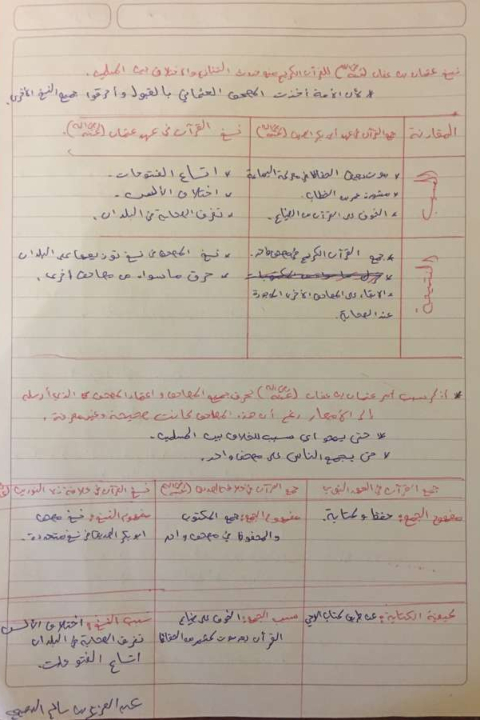 نسخ عثمان بن عفان (رضي الله عنه) للقرآن الكريم منع حدوث التنازع والاختلاف بين المسلمين.
* لأن الأمة أخذت المصحف العثماني بالقبول وأحرقوا جميع النسخ الأخرى.
المقارنة
جمع القرآن في عهد أبي بكر الصديق (رضي الله عنه)
نسخ القرآن في عهد عثمان (رضي الله عنه).
السبب
* موت بعض الحفاظ في معركة اليمامة
* مشورة عمر بن الخطاب.
* الخوف على القرآن من الضياع.
* اتساع الفتوحات.
* اختلاف الألسن.
* تفرق الصحابة في البلدان.
النتيجة
* جمع القرآن الكريم في مصحف واحد.
* الابقاء على المصاحف الأخرى الموجودة
عند الصحابة.
* نسخ المصحف في نسخ توزيعها على البلدان
* حرق ما سواه من مصاحف أخرى.
* أذكر سبب أمر عثمان بن عفان (رضي الله عنه) بحرق جميع المصاحف واعتماد المصحف الذي أرسله
إلى الأمصار رغم أن هذه المصاحف كانت صحيحة وغير محرفة.
* حتى يمحو أي سبب للخلاف بين المسلمين.
* حتى يجمع الناس على مصحف واحد.
جمع القرآن في العهد النبوي
جمع القرآن في خلافة الصديق (رضي الله عنه)
نسخ القرآن في خلافة ذي النورين
مفهوم الجمع: حفظ وكتابة.
مفهوم الجمع: جمع المكتوب
والمحفوظ في مصحف واحد
مفهوم النسخ: نسخ مصحف
أبو بكر الصديق في نسخ متعددة.
كيفية الكتابة: عن طريق كتاب الوحي
سبب الجمع: الخوف على ضياع
القرآن بعد موت كثير من الحفاظ
سبب النسخ: اختلاف الألسن
تفرق الصحابة في البلدان
اتساع الفتوحات.
عبد العزيز بن سالم